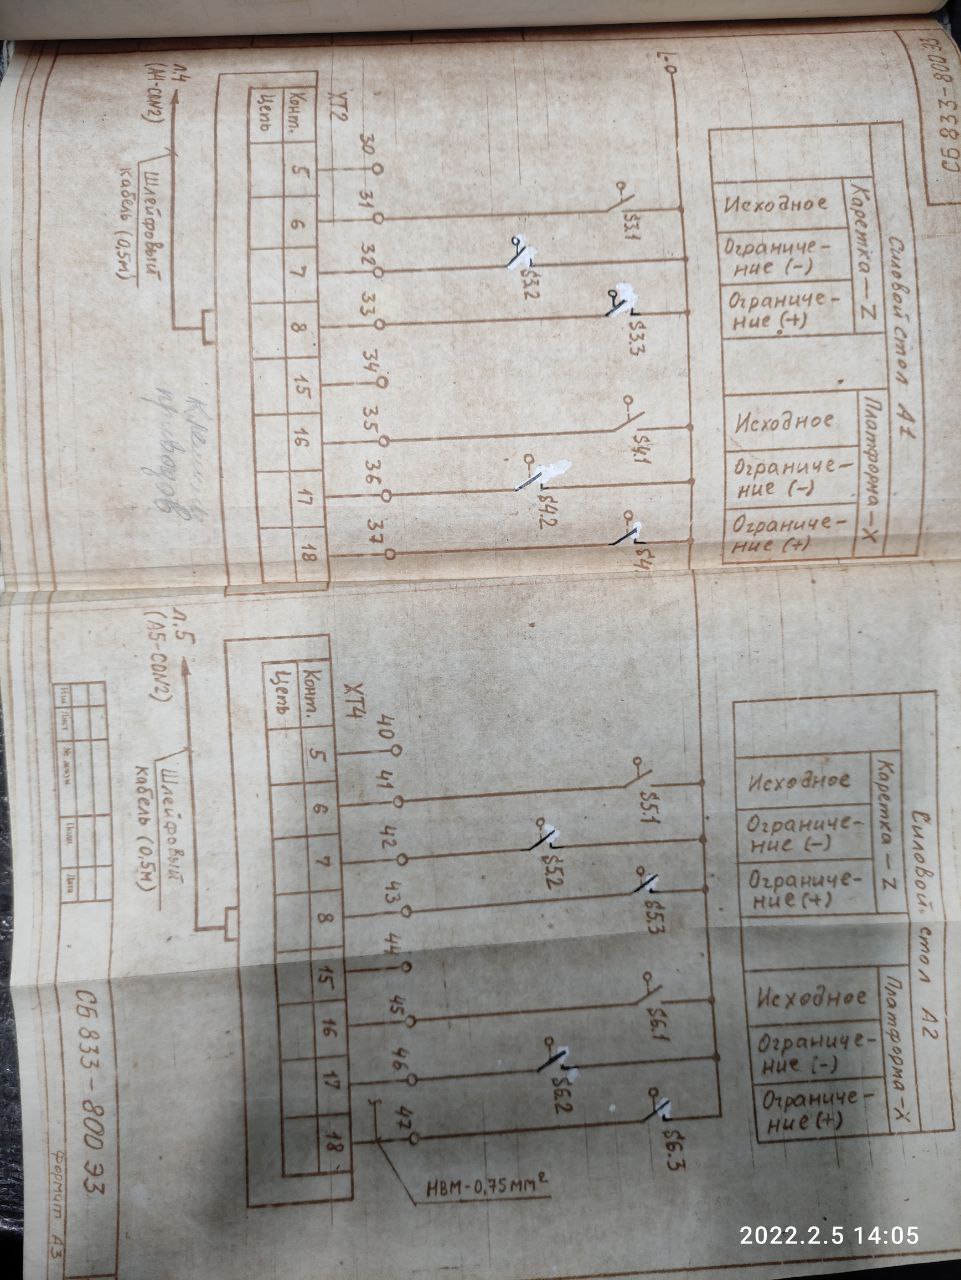 СБ 833-800 Э3
Силовой стол А1
Каретка — Z
Платформа — X
Исходное
Ограниче-
ние (-)
Ограниче-
ние (+)
Исходное
Ограниче-
ние (-)
Ограниче-
ние (+)
L-0
S3.1
S3.2
S3.3
S4.1
S4.2
S4.
30
31
32
33
34
35
36
37
ХТ2
Конт.
5
6
7
8
15
16
17
18
Цепь
Л.4
(А1-CON2)
Шлейфовый
кабель (0,5м)
приводов
Силовой стол А2
Каретка — Z
Платформа — X
Исходное
Ограниче-
ние (-)
Ограниче-
ние (+)
Исходное
Ограниче-
ние (-)
Ограниче-
ние (+)
S5.1
S5.2
S5.3
S6.1
S6.2
S6.3
40
41
42
43
44
45
46
47
ХТ4
Конт.
5
6
7
8
15
16
17
18
Цепь
НВМ-0,75мм²
Л.5
(А5-CON2)
Шлейфовый
кабель (0,5м)
Изм
Лист
№ докум.
Подп.
Дата
СБ 833-800 Э3
Формат А3
2022.2.5 14:05